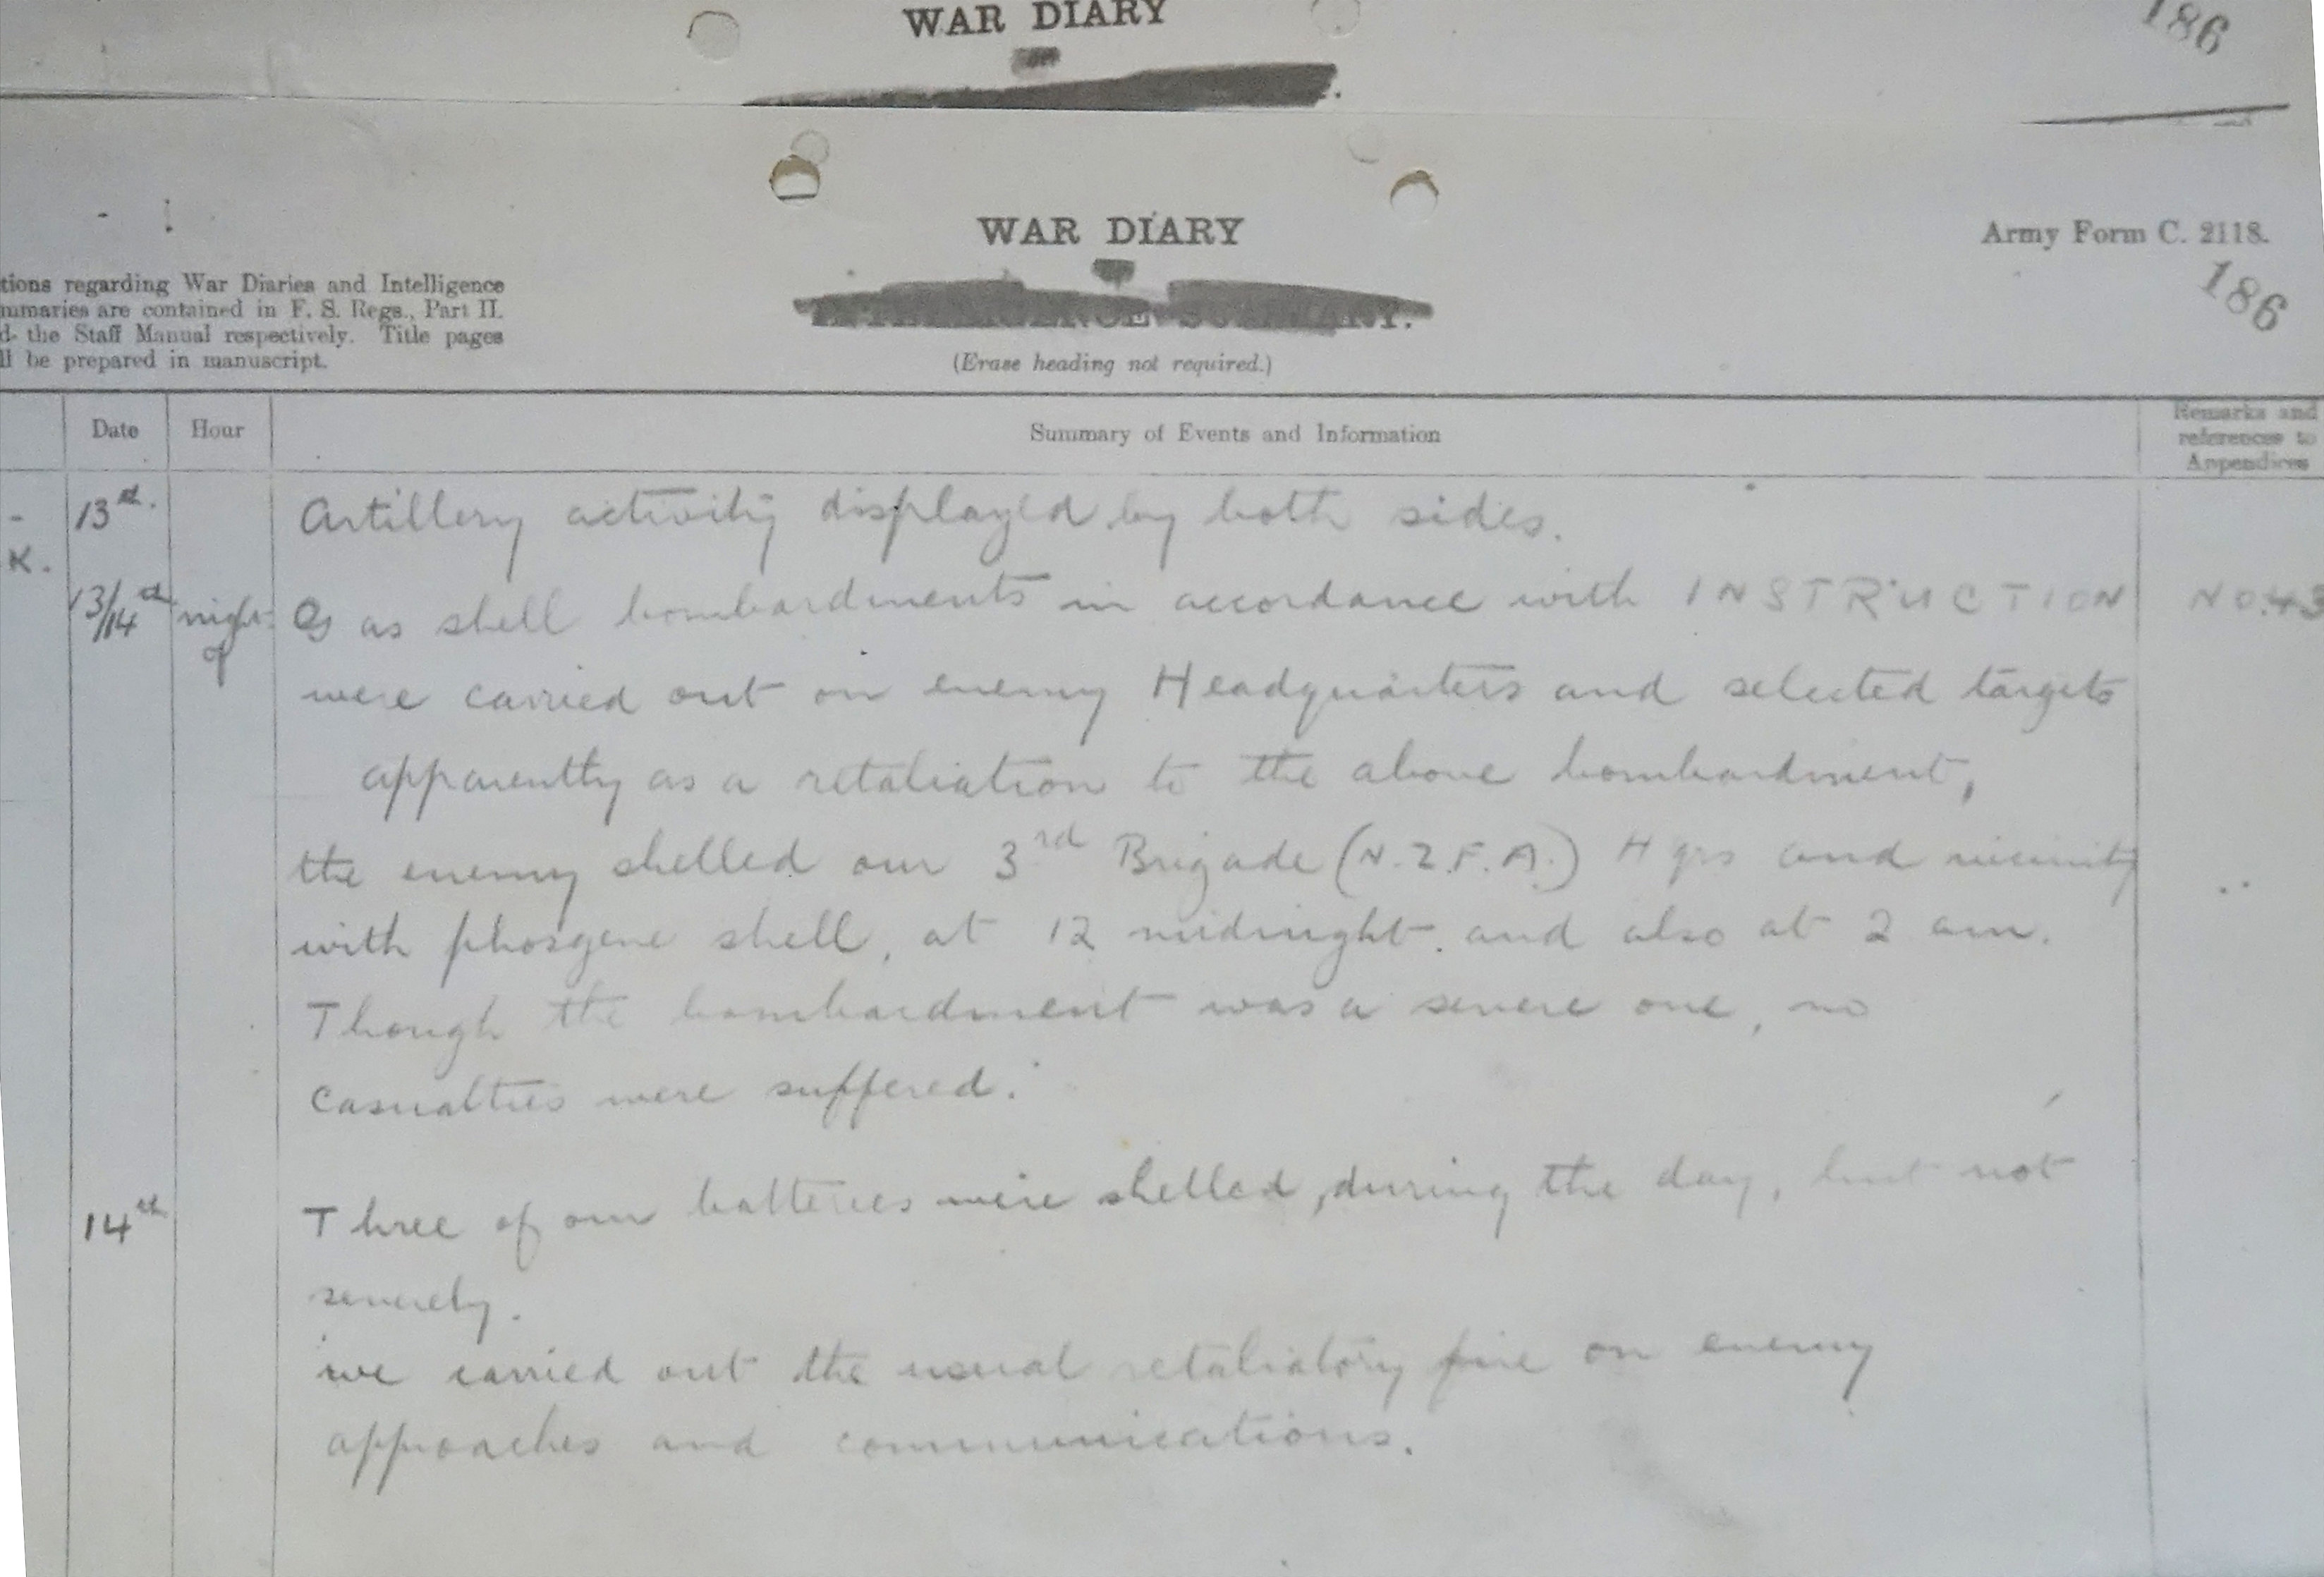 WAR DIARY
or
186
WAR DIARY
Army Form C. 2118.
186
tions regarding War Diaries and Intelligence
mmaries are contained in F. S. Regs., Part II.
d the Staff Manual respectively. Title pages
ll be prepared in manuscript.
INTELLIGENCE SUMMARY.
(Erase heading not required.)
Date
Hour
Summary of Events and Information
Remarks and
references to
Appendices
13th. Artillery activity displayed by both sides.
K.
13/14th night of Gas shell bombardments in accordance with INSTRUCTION No.43
were carried out on enemy Headquarters and selected targets
apparently as a retaliation to the above bombardment,
the enemy shelled our 3rd Brigade (N.Z.F.A.) Hqrs and vicinity
with phosgene shell, at 12 midnight. and also at 2 am.
Though the bombardment was a severe one, no
casualties were suffered.
14th Three of our batteries were shelled, during the day, but not
severely.
we carried out the usual retaliatory fire on enemy
approaches and communications.